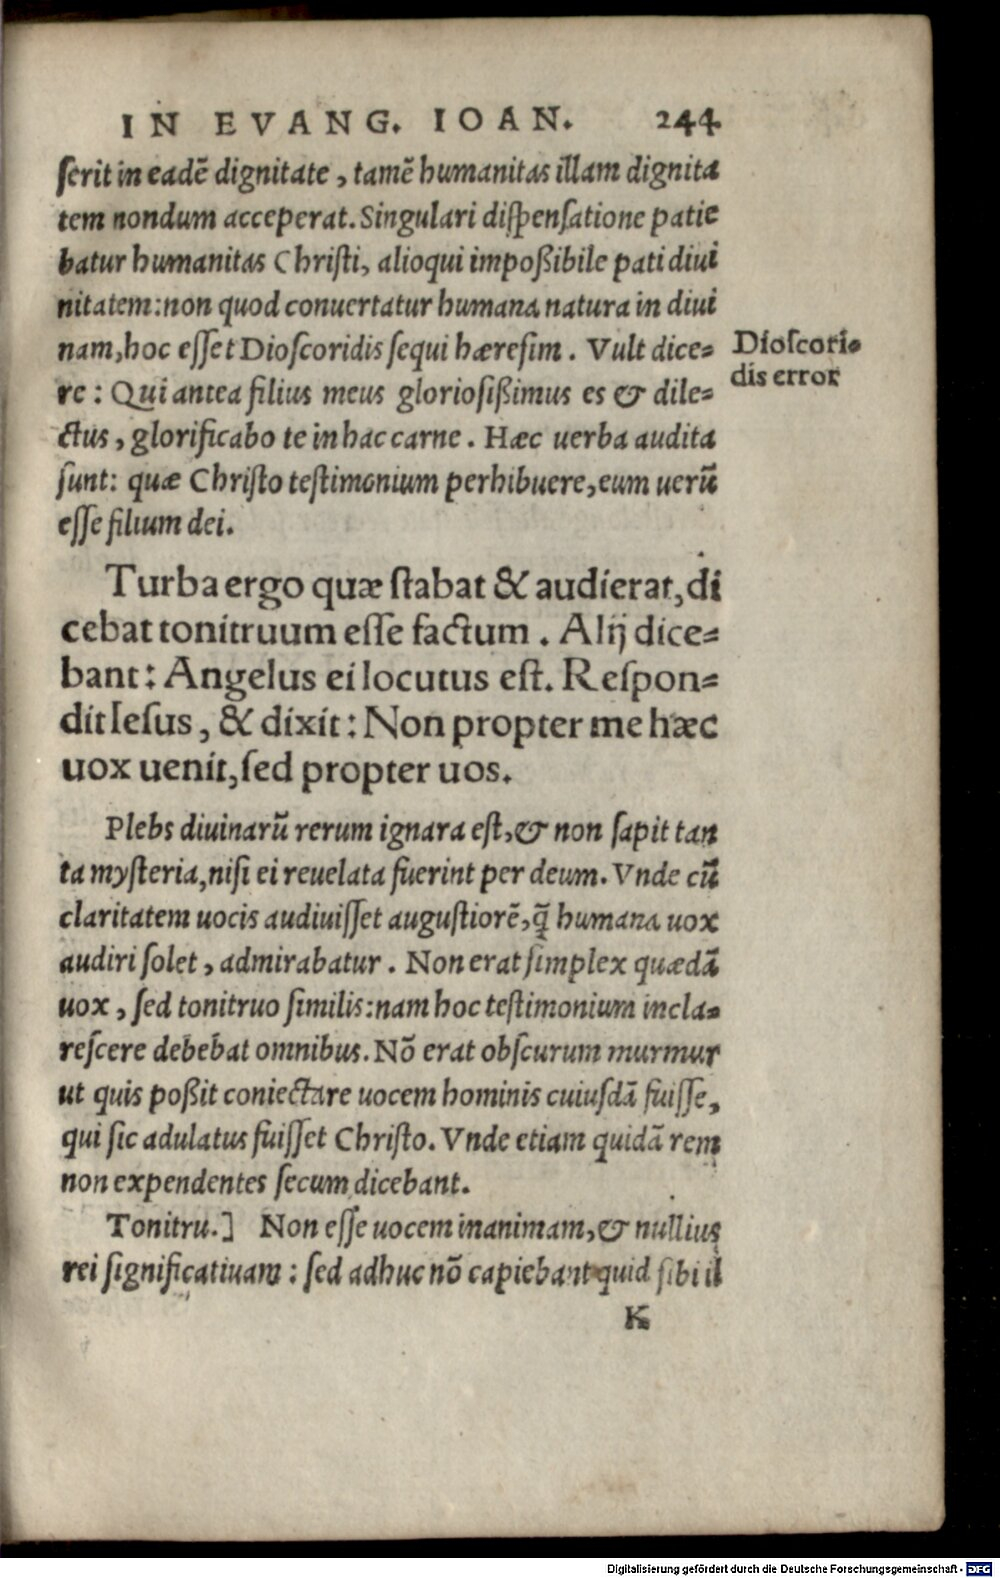 IN EVANG. IOAN. 244
serit in eadē dignitate, tamē humanitas illam dignita
tem nondum acceperat. Singulari dispensatione patie
batur humanitas Christi, alioqui impoßibile pati diui
nitatem: non quod conuertatur humana natura in diui
nam, hoc esset Dioscoridis sequi hæresim. Vult dice=
re: Qui antea filius meus gloriosißimus es & dile=
ctus, glorificabo te in hac carne. Hæc uerba audita
sunt: quæ Christo testimonium perhibuere, eum uerū
esse filium dei.
Dioscori=
dis error
Turba ergo quæ stabat & audierat, di
cebat tonitruum esse factum. Alij dice=
bant: Angelus ei locutus est. Respon=
dit Iesus, & dixit: Non propter me hæc
uox uenit, sed propter uos.
Plebs diuinarū rerum ignara est, & non sapit tan
ta mysteria, nisi ei reuelata fuerint per deum. Vnde cū
claritatem uocis audiuisset augustiorē, q̄ humana uox
audiri solet, admirabatur. Non erat simplex quædā
uox, sed tonitruo similis: nam hoc testimonium incla=
rescere debebat omnibus. Nō erat obscurum murmur
ut quis poßit coniectare uocem hominis cuiusdā fuisse,
qui sic adulatus fuisset Christo. Vnde etiam quidā rem
non expendentes secum dicebant.
Tonitru.] Non esse uocem inanimam, & nullius
rei significatiuam: sed adhuc nō capiebant quid sibi il
K
Digitalisierung gefördert durch die Deutsche Forschungsgemeinschaft - DFG